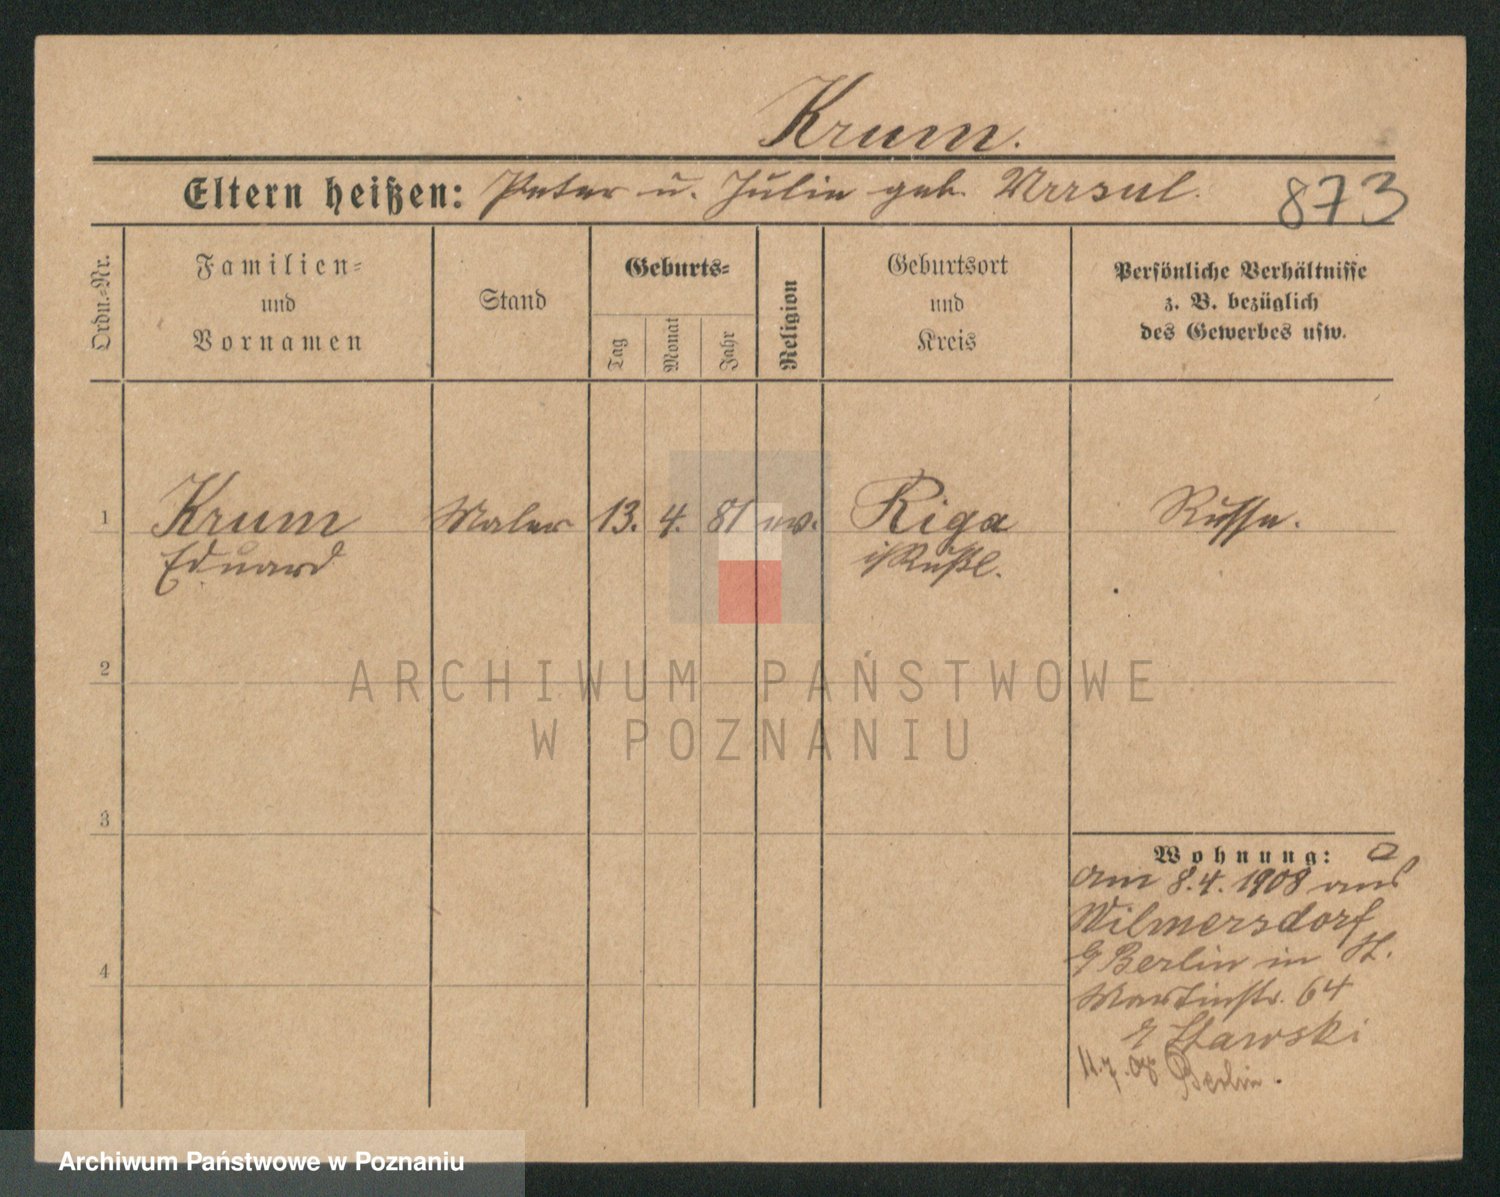 Krum.
Eltern heißen: Peter u. Julie geb. Urrsul. 873
Ordn.-Nr.
Familien-
und
Vornamen
Stand
Geburts-
Tag
Monat
Jahr
Religion
Geburtsort
und
Kreis
Persönliche Verhältnisse
z. B. bezüglich
des Gewerbes usw.
1 Krum Maler 13. 4. 81 ev. Riga Russe.
Eduard i/Rußl.
2
ARCHIWUM PAŃSTWOWE
W POZNANIU
3
Wohnung:
am 8.4.1908 aus
Wilmersdorf
Berlin in St.
4
Martinstr. 64
Stawski
11.7.08 Berlin.
Archiwum Państwowe w Poznaniu